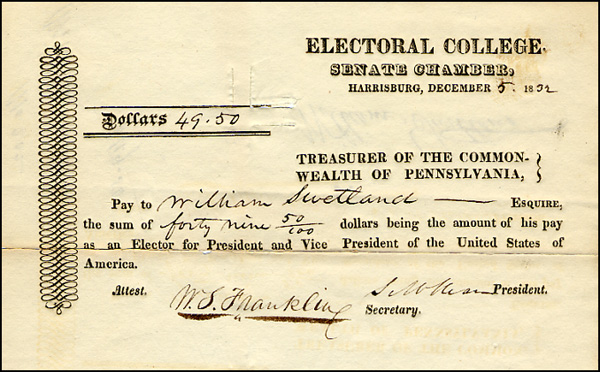 ELECTORAL COLLEGE.
SENATE CHAMBER,
HARRISBURG, DECEMBER 5. 1832
Dollars 49.50
TREASURER OF THE COMMON-
WEALTH OF PENNSYLVANIA,
Pay to William Swetland — ESQUIRE,
the sum of forty nine 50/100 dollars being the amount of his pay
as an Elector for President and Vice President of the United States of
America.
Attest. President.
W. S. Franklin Secretary.